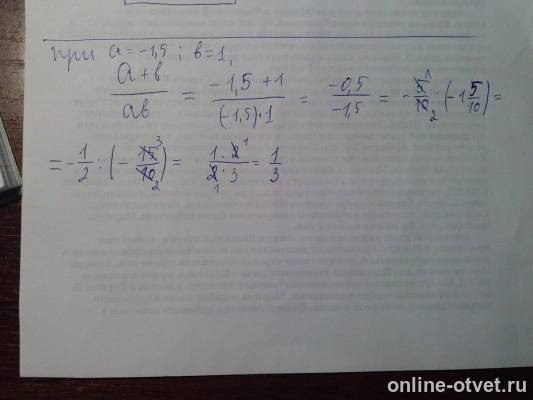 при a = -1,5 ; b = 1,
(a+b)/(ab) = (-1,5+1)/((-1,5)·1) = (-0,5)/(-1,5) = -5/10 : (-1 5/10) =
= -1/2 : (-15/10) = (1·2)/(2·3) = 1/3
online-otvet.ru